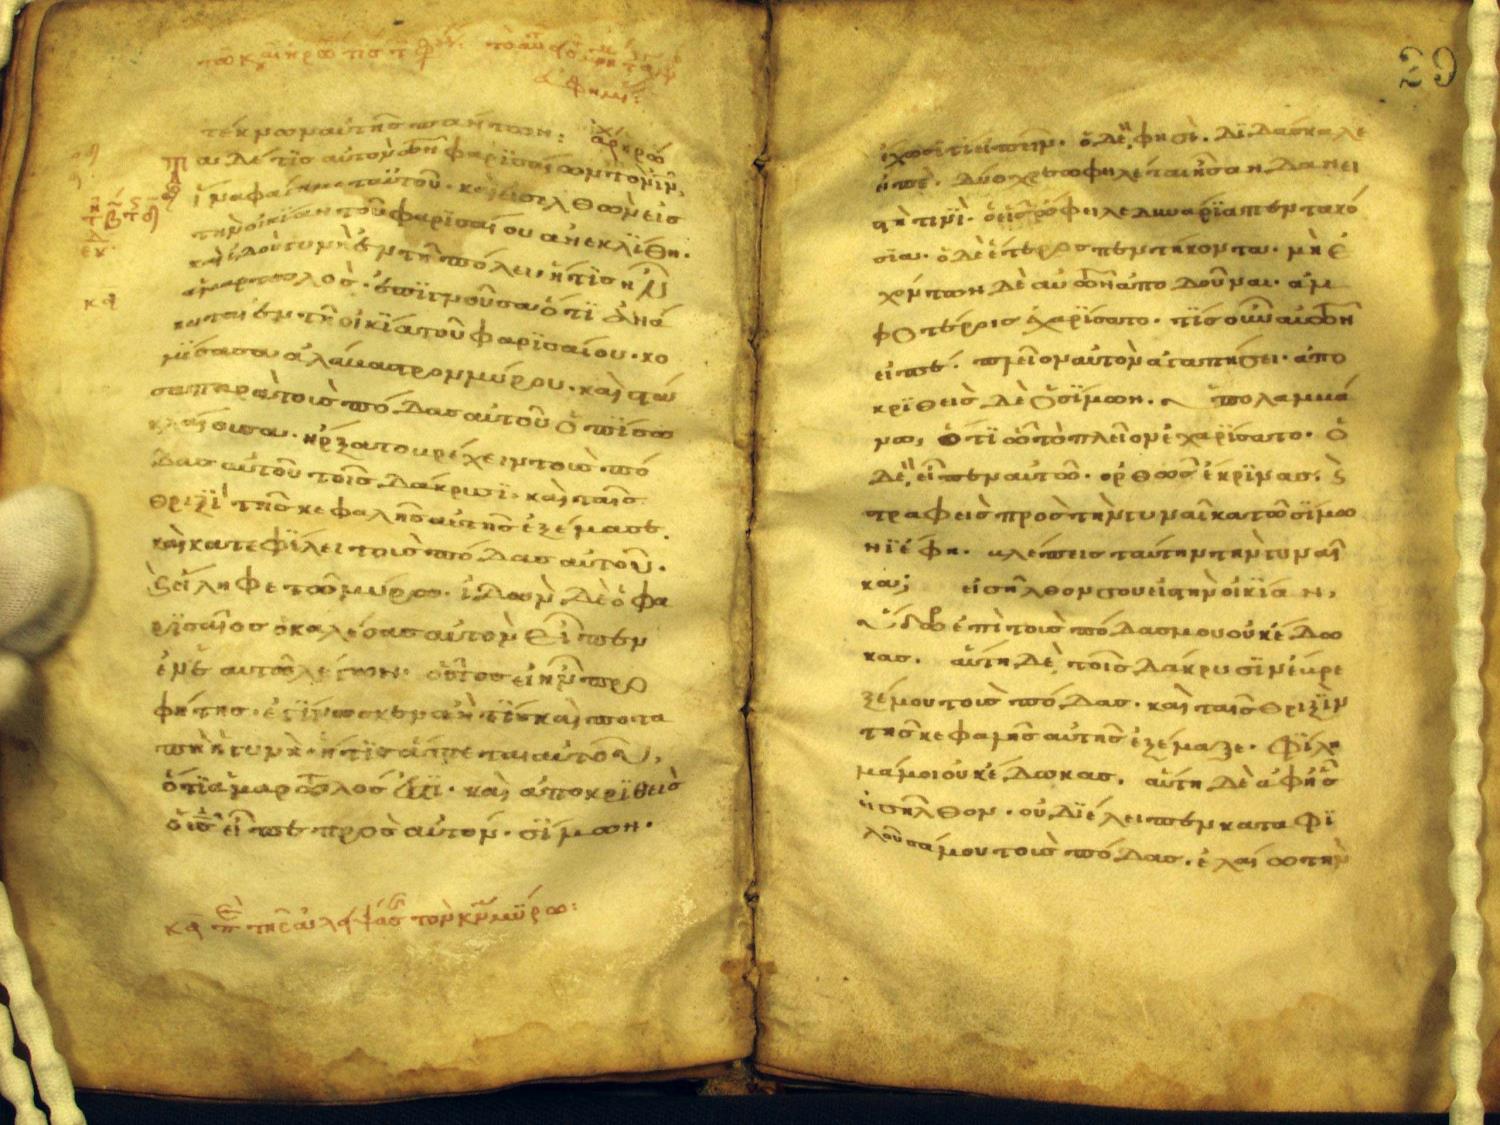 τέκνων αὐτῆς πάντων:
ἠρώτα δέ τις αὐτὸν τῶν φαρισαίων
ἵνα φάγη μετ αὐτοῦ· καὶ εἰσελθὼν εἰς
τὴν οἰκίαν τοῦ φαρισαίου ἀνεκλίθη·
καὶ ἰδοὺ γυνὴ ἐν τῇ πόλει ἥτις ἦν
ἁμαρτωλὸς· ἐπιγνοῦσα ὅτι ἀνά
κειται ἐν τῇ οἰκία τοῦ φαρισαίου· κο
μίσασα ἀλάβαστρον μύρου· καὶ στᾶ
σα παρὰ τοὺς πόδας αὐτοῦ ὀπίσω
κλαίουσα· ἤρξατο βρέχειν τοὺς πό
δας αὐτοῦ τοῖς δάκρυσι· καὶ ταῖς
θριξὶ τῆς κεφαλῆς αὐτῆς ἐξέμασσε.
καὶ κατεφίλει τοὺς πόδας αὐτοῦ·
καὶ ἤλειφε τῶ μύρω· ἰδὼν δὲ ὁ φα
ρισαῖος ὁ καλέσας αὐτὸν εἶπεν
ἐν ἑαυτῶ λέγων· οὗτος εἰ ἦν προ
φήτης· ἐγίνωσκεν ἂν τίς καὶ ποτα
πὴ ἡ γυνὴ· ἥτις ἅπτεται αὐτοῦ,
ὅτι ἁμαρτωλός ἐστι· καὶ ἀποκριθεὶς
ὁ ις εἶπε πρὸς αὐτὸν· σίμων·
κα περὶ τῆς ἀλειψάσης τὸν κν μύρω:
29
ἔχω σοί τι εἰπεῖν· ὁ δέ φησι. διδάσκαλε
εἰπέ· δύο χρεωφειλέται ἦσαν δανει
στῆ τινί· ὁ εἷς ὤφειλε δηνάρια πεντακό
σια· ὁ δὲ ἕτερος πεντήκοντα· μὴ ἐ
χόντων δὲ αὐτῶν ἀποδοῦναι· ἀμ
φοτέροις ἐχαρίσατο· τίς οὖν αὐτῶν
εἰπέ· πλεῖον αὐτὸν ἀγαπήσει· ἀπο
κριθεὶς δὲ ὁ σίμων· ὑπολαμβά
νω, ὅτι ὧ τὸ πλεῖον ἐχαρίσατο· ὁ
δὲ εἶπεν αὐτῶ· ὀρθῶς ἔκρινας· καὶ
στραφεὶς πρὸς τὴν γυναῖκα τῶ σίμω
νι ἔφη· βλέπεις ταύτην τὴν γυναῖ
κα; εἰσῆλθόν σου εἰς τὴν οἰκίαν,
ὕδωρ ἐπὶ τοὺς πόδας μου οὐκ ἔδω
κας. αὕτη δὲ τοῖς δάκρυσιν ἔβρε
ξέ μου τοὺς πόδας· καὶ ταῖς θριξὶν
τῆς κεφαλῆς αὐτῆς ἐξέμαξε· φίλη
μά μοι οὐκ ἔδωκας, αὕτη δὲ ἀφ ἧς
εἰσῆλθον· οὐ διέλειπεν καταφι
λοῦσά μου τοὺς πόδας. ἐλαίω τὴν